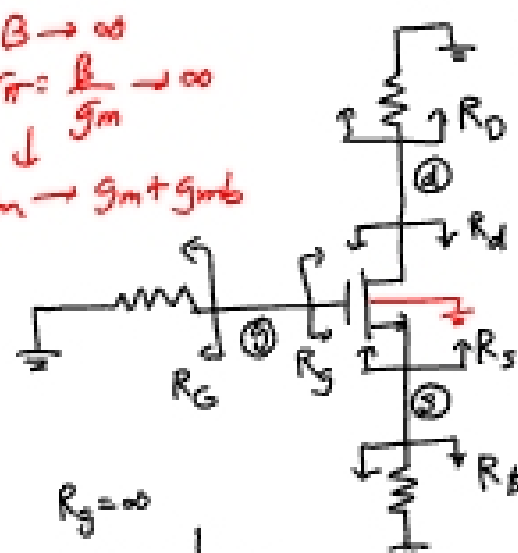 β → ∞
rπ = β/gm → ∞
↓
m → gm + gmb
RD
d
Rd
g
RG
Rg
Rs
s
Rg = ∞